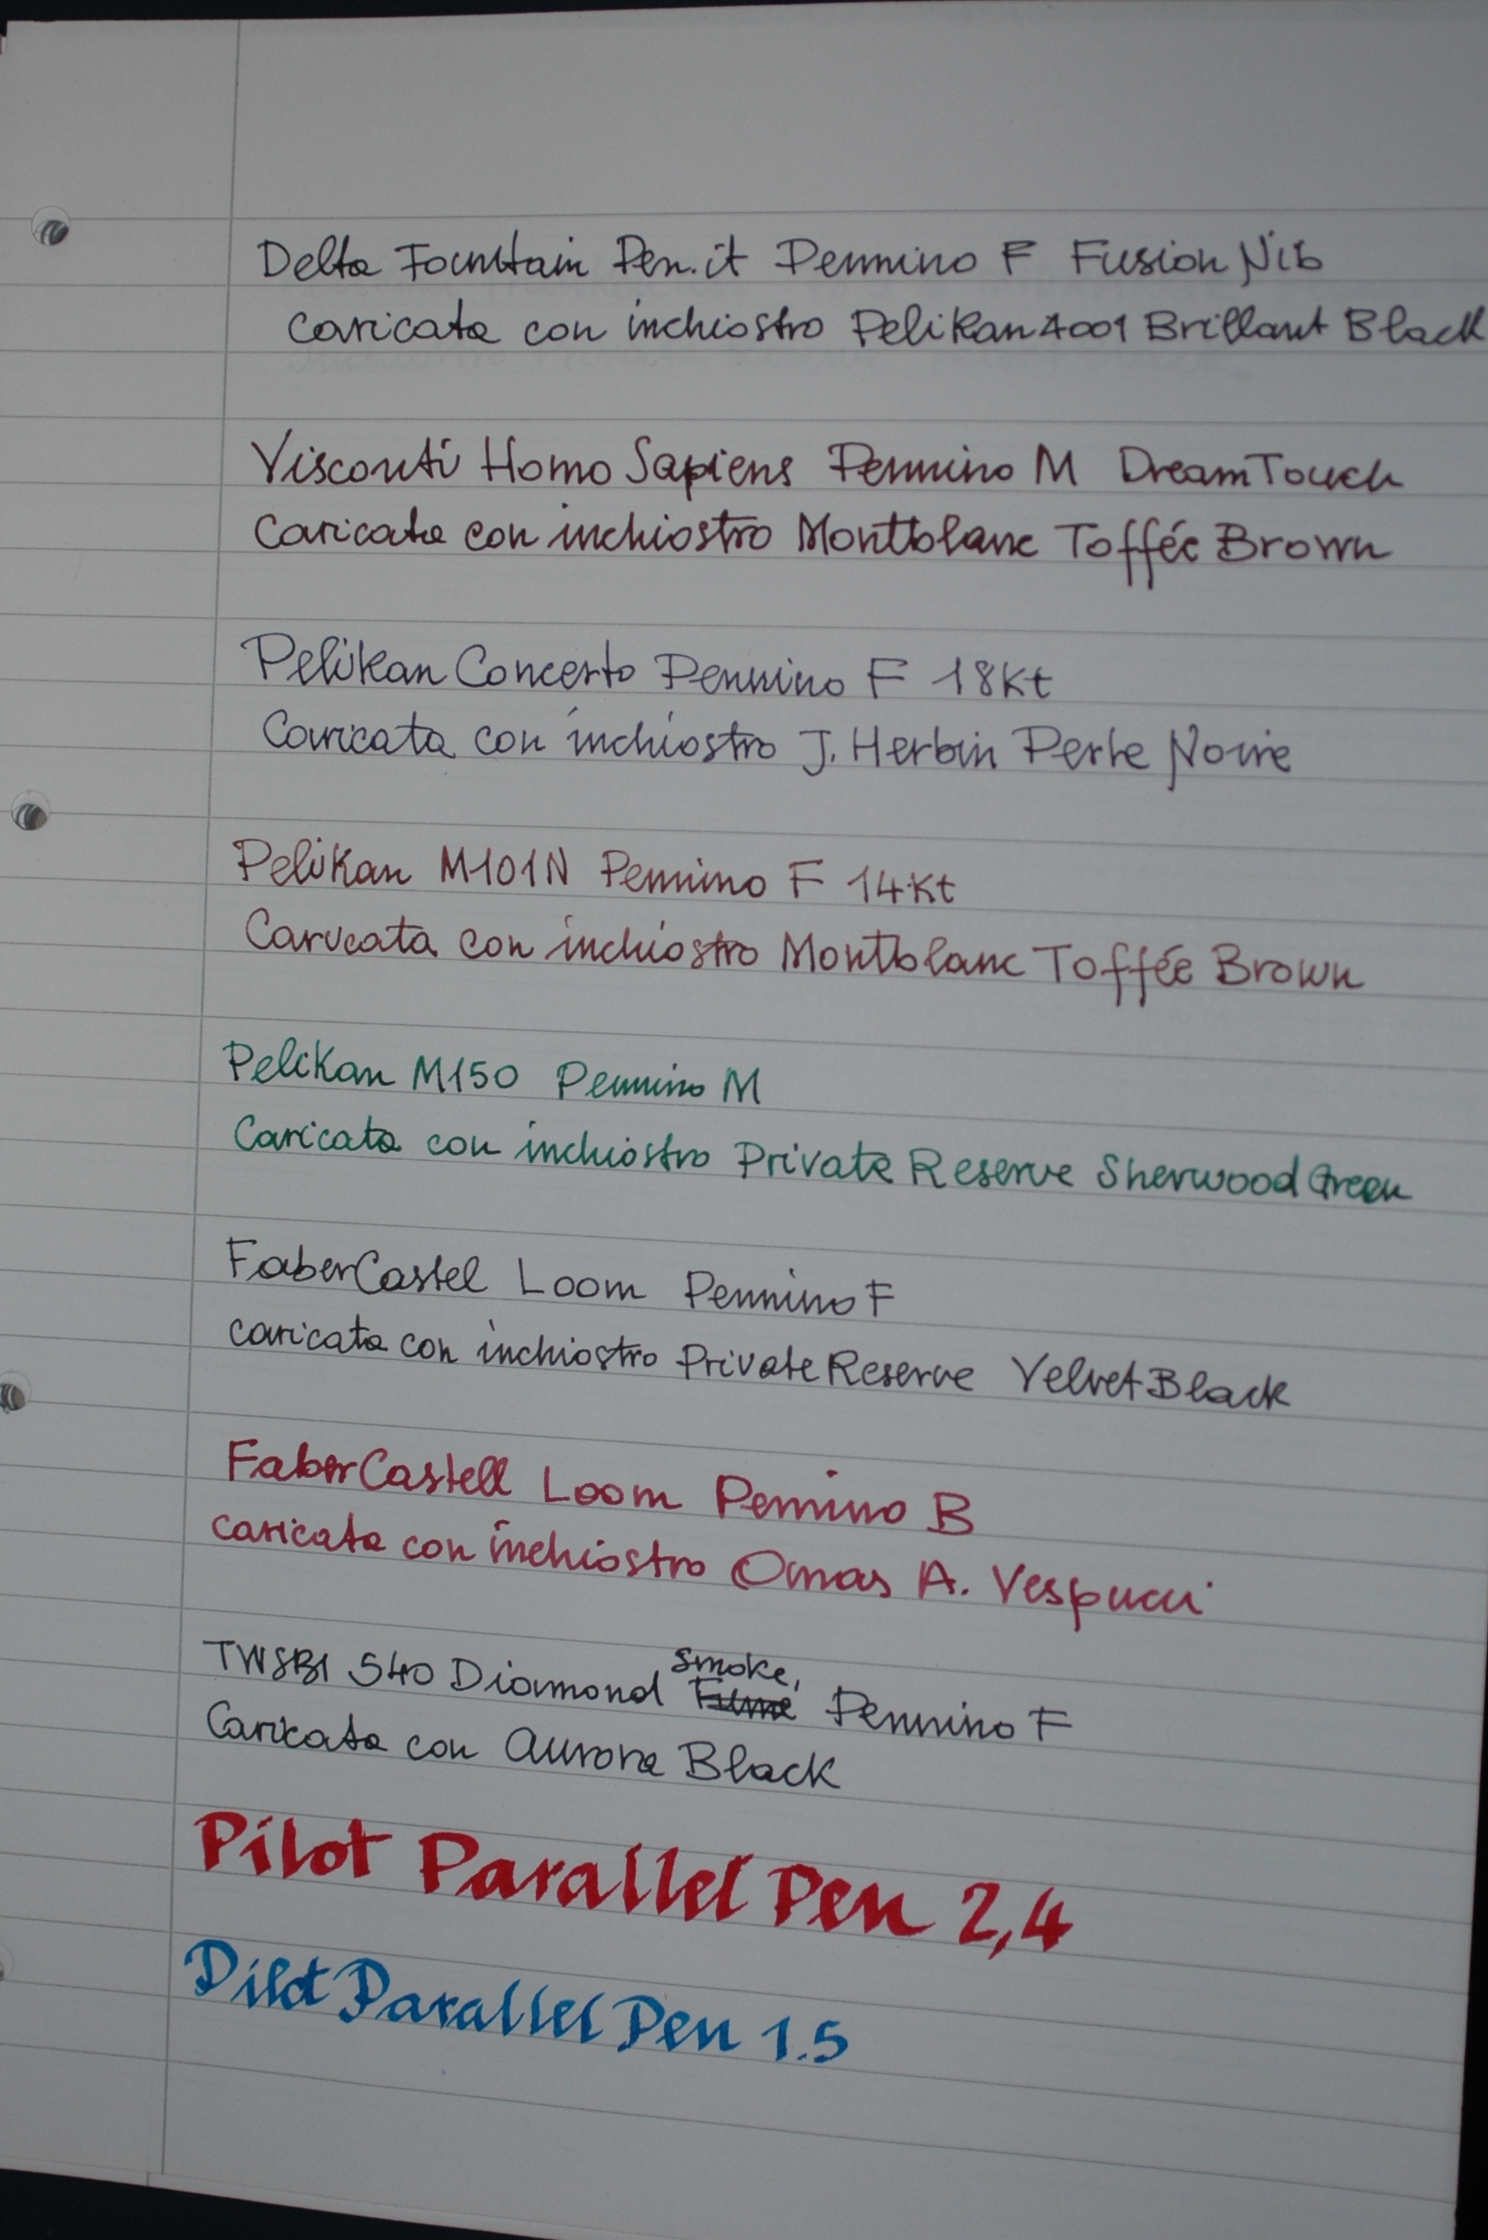 Delta Fountain Pen.it Pennino F Fusion Nib
caricata con inchiostro Pelikan 4001 Brillant Black
Visconti Homo Sapiens Pennino M DreamTouch
Caricata con inchiostro Montblanc Toffée Brown
Pelikan Concerto Pennino F 18Kt
Caricata con inchiostro J. Herbin Perle Noire
Pelikan M101N Pennino F 14Kt
Caricata con inchiostro Montblanc Toffée Brown
Pelikan M150 Pennino M
Caricata con inchiostro Private Reserve Sherwood Green
FaberCastel Loom Pennino F
caricata con inchiostro Private Reserve Velvet Black
FaberCastell Loom Pennino B
caricata con inchiostro Omas A. Vespucci
TWSBI 540 Diamond Smoke, Pennino F
Caricata con Aurora Black
Pilot Parallel Pen 2,4
Pilot Parallel Pen 1.5